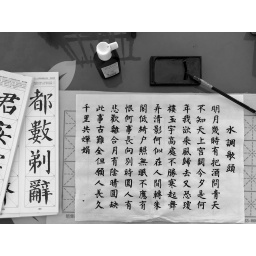 水調歌頭
明月幾時有把酒問青天
不知天上宮闕今夕是何
年我欲乘風歸去又恐瓊
樓玉宇高處不勝寒起舞
弄清影何似在人間轉朱
閣低綺戶照無眠不應有
恨何事長向別時圓人有
悲歡離合月有陰晴圓缺
此事古難全但願人長久
千里共嬋娟
都數剃辭
君